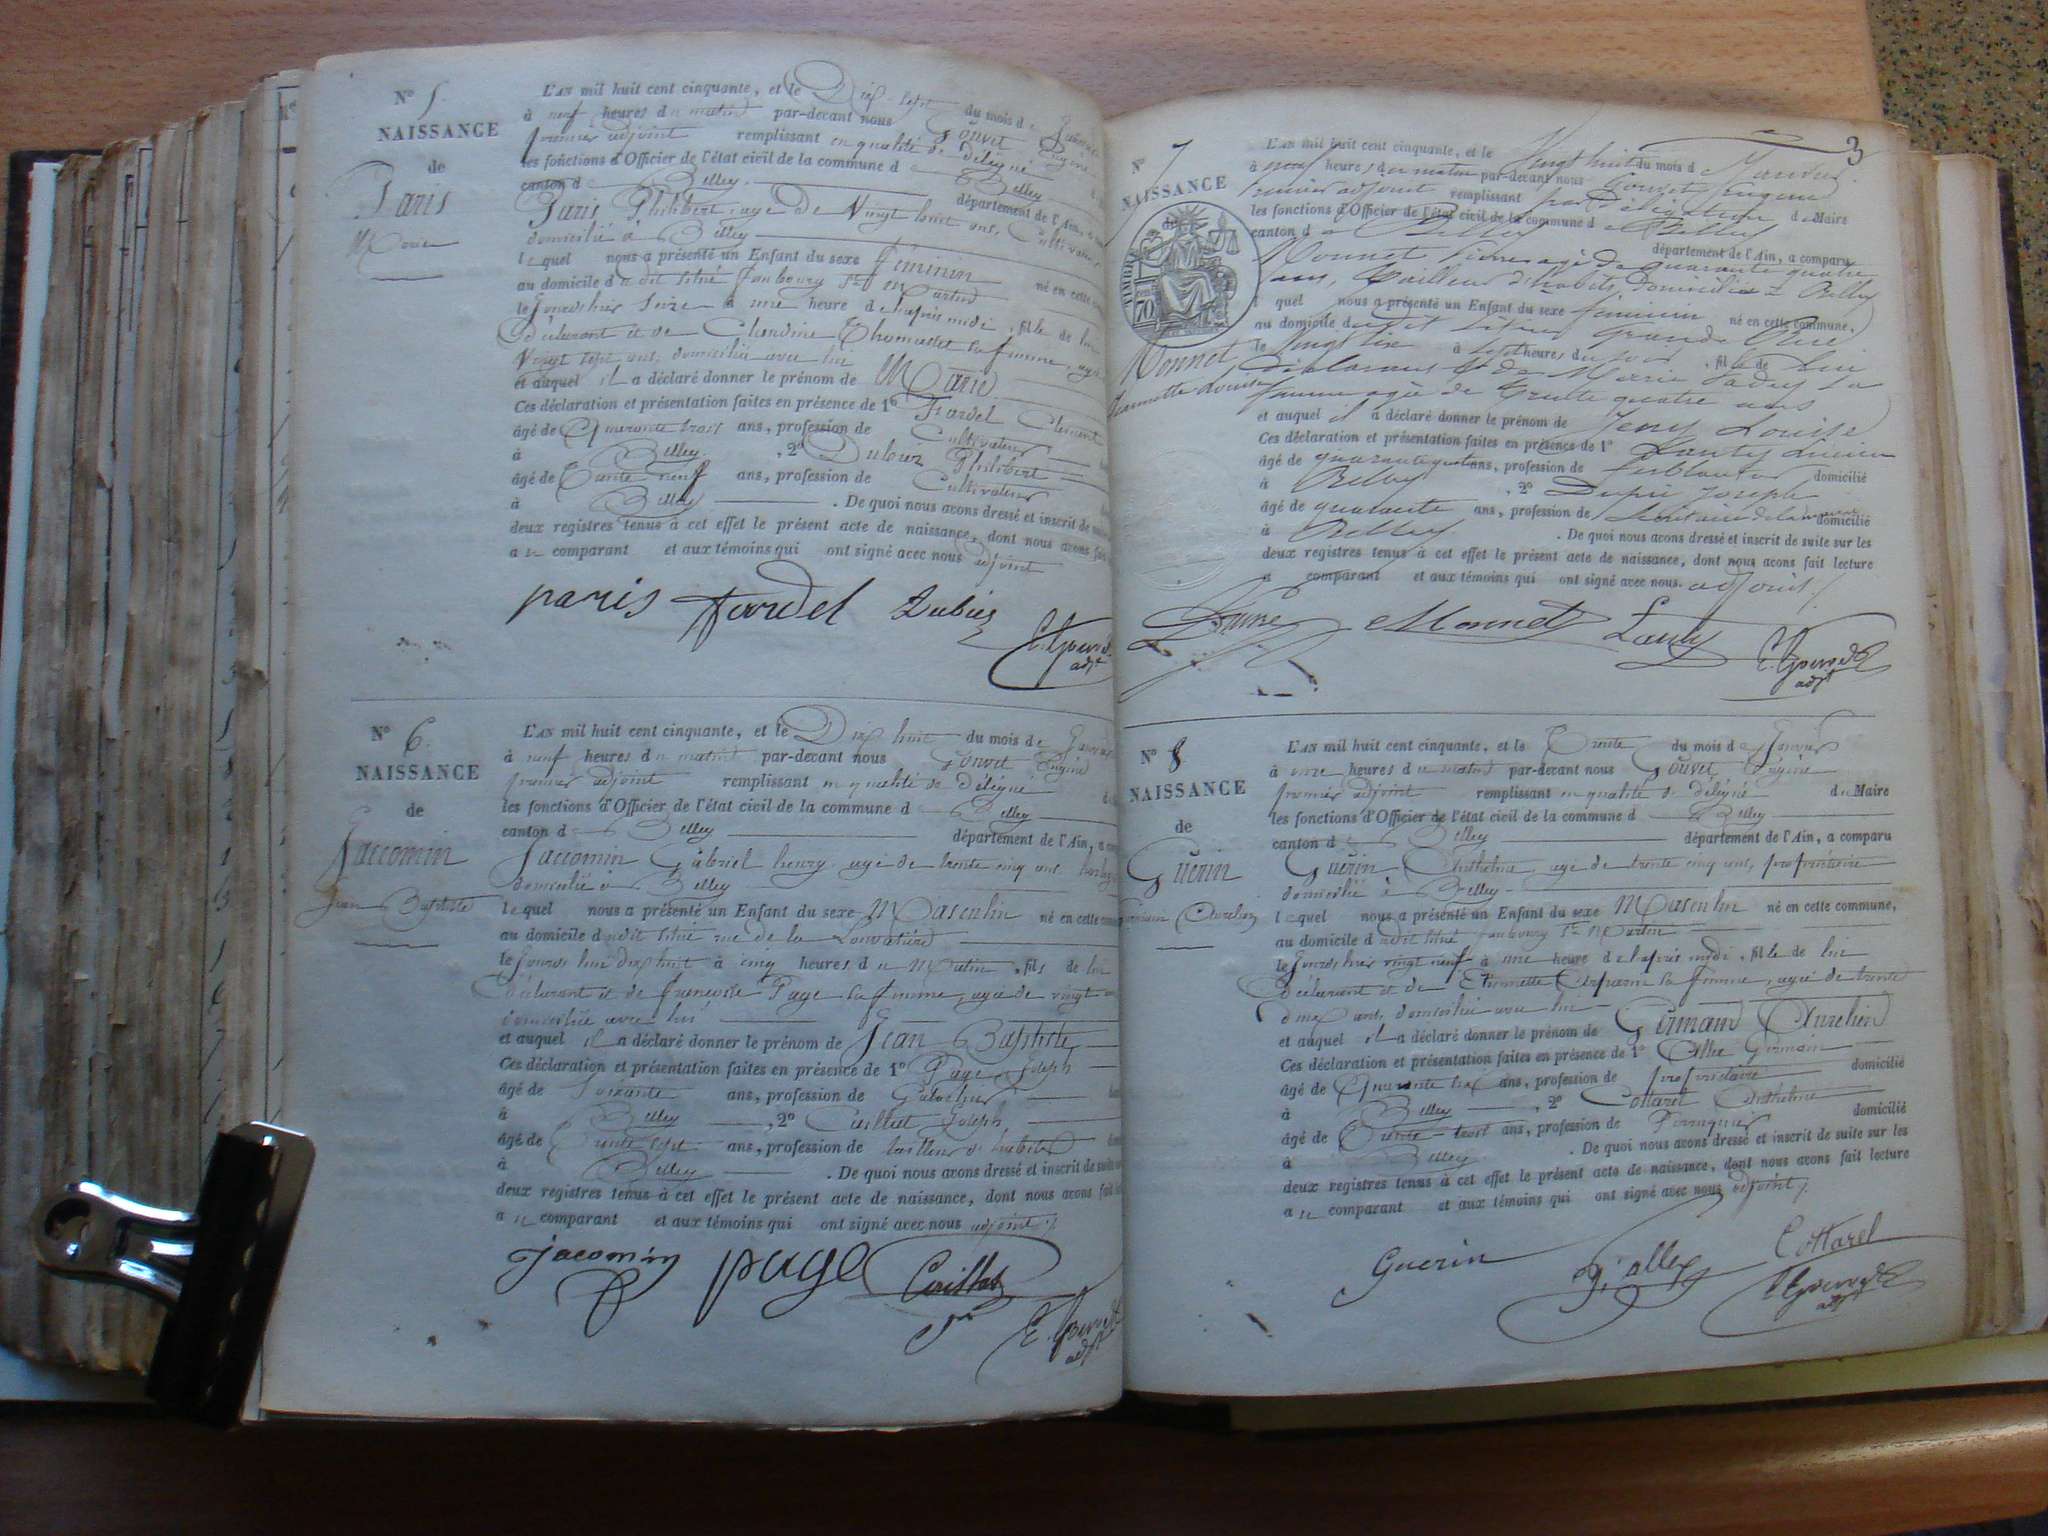 N° 5.
NAISSANCE
de
Paris
Marie
L'AN mil huit cent cinquante, et le Dix-sept du mois de
à neuf heures du matin par-devant nous Gouvet Eugène
premier adjoint remplissant en qualité de délégué
les fonctions d'Officier de l'état civil de la commune d Belley
canton d Belley département de l'Ain, a
Paris Philibert, agé de Vingt huit ans, Cultivateur
domicilié à Belley
lequel nous a présenté un Enfant du sexe féminin né en cette
au domicile dudit situé faubourg St Martin
le jourd'hui seize à une heure de l'après midi, fille de lui
Déclarant et de Claudine Thomasset sa femme, agée
Vingt sept ans, domiciliée avec lui
et auquel il a déclaré donner le prénom de Marie
Ces déclaration et présentation faites en présence de 1° Fardel Clément
âgé de Quarante trois ans, profession de Cultivateur
à Belley, 2° Philibert
âgé de Trente neuf ans, profession de Cultivateur
à Belley. De quoi nous avons dressé et inscrit de
deux registres tenus à cet effet le présent acte de naissance, dont nous avons fait
au comparant et aux témoins qui ont signé avec nous adjoint
paris fardel
E. Gouvet
adjt
N° 6.
NAISSANCE
de
Jaccomin
Jean Baptiste
L'AN mil huit cent cinquante, et le Dix huit du mois de Janvier
à neuf heures du matin par-devant nous Gouvet Eugène
premier adjoint remplissant en qualité de délégué
les fonctions d'Officier de l'état civil de la commune d Belley
canton d Belley département de l'Ain, a
Jaccomin Gabriel henry agé de trente cinq ans
domicilié à Belley
lequel nous a présenté un Enfant du sexe Masculin né en cette
au domicile dudit situé rue de la
le jourd'hui dix huit à cinq heures du Matin, fils de lui
Déclarant et de françoise Page sa femme, agée de vingt
domiciliée avec lui
et auquel il a déclaré donner le prénom de Jean Baptiste
Ces déclaration et présentation faites en présence de 1° Page Joseph
âgé de soixante ans, profession de
à Belley, 2° Joseph
âgé de Trente sept ans, profession de tailleur d'habits
à Belley. De quoi nous avons dressé et inscrit de suite
deux registres tenus à cet effet le présent acte de naissance, dont nous avons fait
au comparant et aux témoins qui ont signé avec nous adjoint
jacomin page
E. Gouvet
adjt
3
N° 7
NAISSANCE
de
TIMBRE
70
Monnet
Louise
L'AN mil huit cent cinquante, et le Vingt huit du mois d Janvier
à heures du matin par-devant nous Gouvet Eugène
premier adjoint remplissant par délégation du Maire
les fonctions d'Officier de l'état civil de la commune d Belley
canton d Belley département de l'Ain, a comparu
Monnet agé de quarante quatre
ans, Tailleur d'habits, domicilié à Belley
lequel nous a présenté un Enfant du sexe féminin né en cette commune,
au domicile dudit situé Grande Rue
le Vingt six à sept heures du soir, fille de lui
déclarant et de Marie sa
femme agée de trente quatre ans
et auquel il a déclaré donner le prénom de Jenny Louise
Ces déclaration et présentation faites en présence de 1°
âgé de quarante ans, profession de ferblantier domicilié
à Belley, 2° Joseph
âgé de quarante ans, profession de Secrétaire de la mairie domicilié
à Belley. De quoi nous avons dressé et inscrit de suite sur les
deux registres tenus à cet effet le présent acte de naissance, dont nous avons fait lecture
au comparant et aux témoins qui ont signé avec nous. adjoint
Monnet
E. Gouvet
adjt
N° 8.
NAISSANCE
de
Guérin
Germain Aurélien
L'AN mil huit cent cinquante, et le Trente du mois de Janvier
à onze heures du matin par-devant nous Gouvet Eugène
premier adjoint remplissant en qualité de délégué du Maire
les fonctions d'Officier de l'état civil de la commune d Belley
canton d Belley département de l'Ain, a comparu
Guérin Anthelme, agé de trente cinq ans, propriétaire
domicilié à Belley
lequel nous a présenté un Enfant du sexe Masculin né en cette commune,
au domicile dudit situé faubourg St Martin
le jourd'hui vingt neuf à une heure de l'après midi, fils de lui
Déclarant et de sa femme, agée de trente
deux ans, domiciliée avec lui
et auquel il a déclaré donner le prénom de Germain Aurélien
Ces déclaration et présentation faites en présence de 1° Germain
âgé de Quarante ans, profession de propriétaire domicilié
à Belley, 2° Cottarel Anthelme
âgé de Trente trois ans, profession de domicilié
à Belley. De quoi nous avons dressé et inscrit de suite sur les
deux registres tenus à cet effet le présent acte de naissance, dont nous avons fait lecture
au comparant et aux témoins qui ont signé avec nous adjoint
Guerin Cottarel
E. Gouvet
adjt